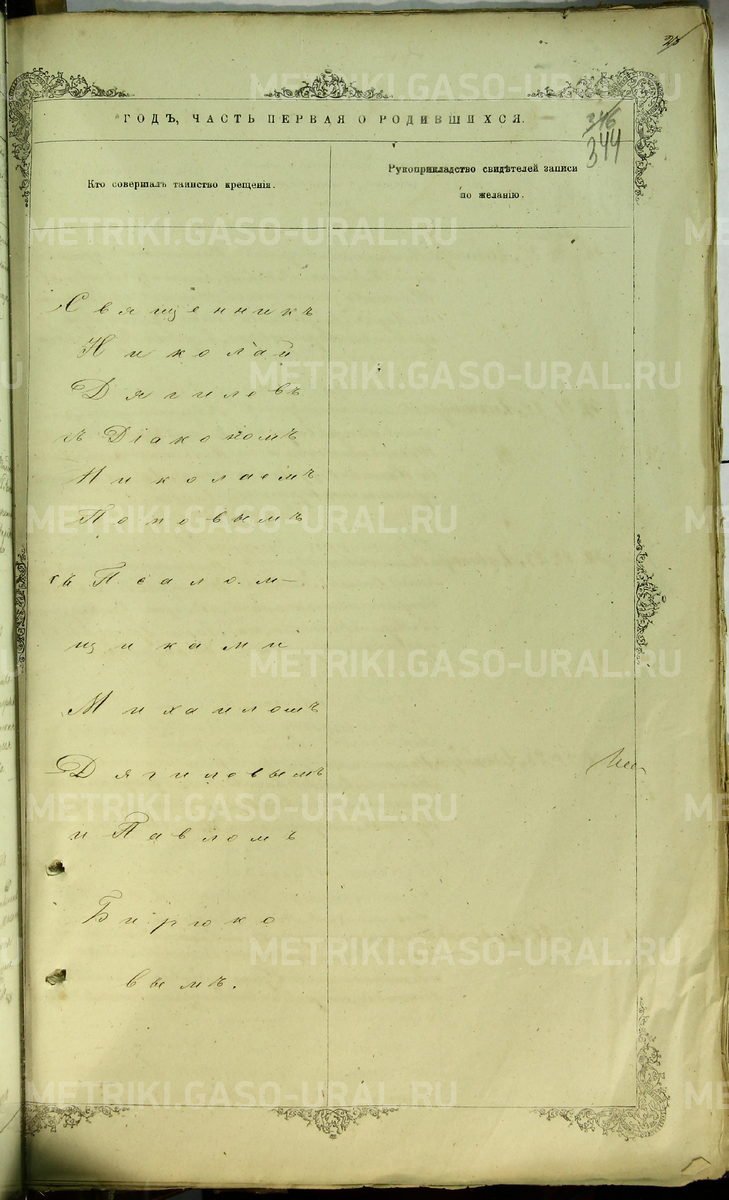 344
ГОДЪ, ЧАСТЬ ПЕРВАЯ О РОДИВШИХСЯ.
Кто совершалъ таинство крещенія.
Рукоприкладство свидѣтелей записи
по желанію.
Священникъ
Николай
Дягиловъ
съ Діакономъ
Николаемъ
Поповымъ
съ Псалом-
щиками
Михаиломъ
Дягиловымъ
и Павломъ
Бирюко
вымъ.
METRIKI.GASO-URAL.RU